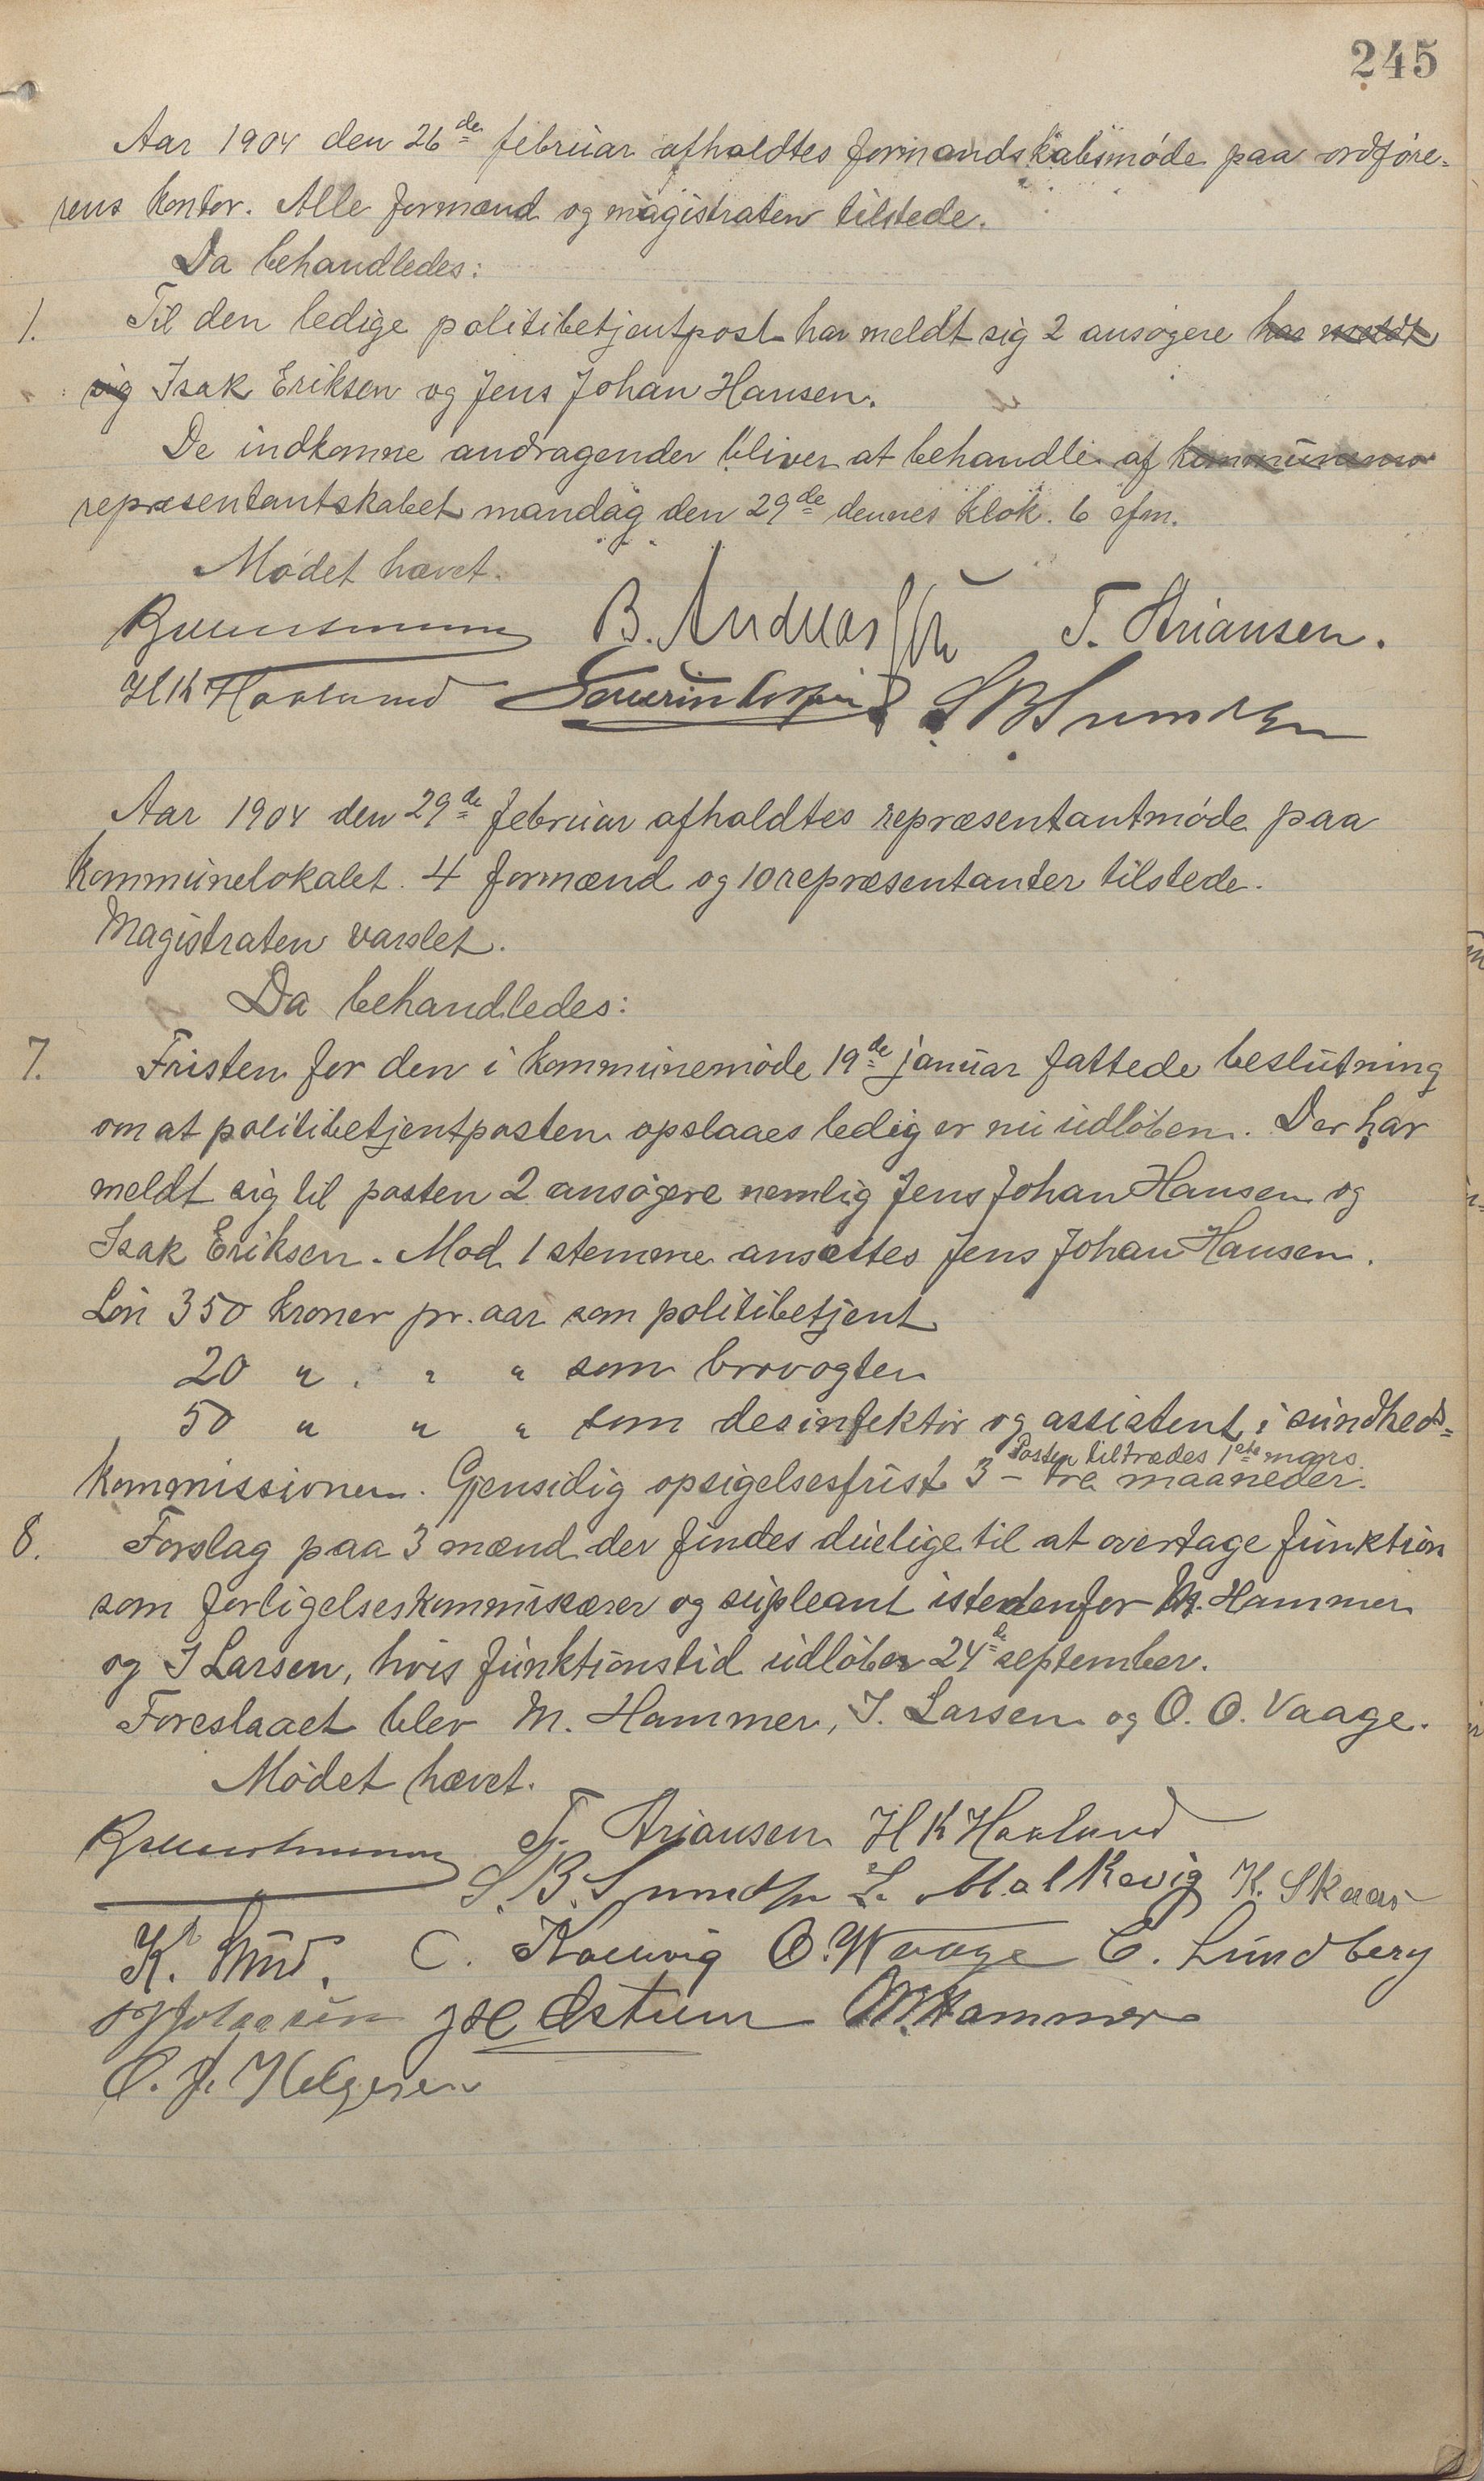 245
Aar 1904 den 26de februar afholdtes formandskabsmøde paa ordføre-
rens kontor. Alle formænd og magistraten tilstede.
Da behandledes:
1. Til den ledige politibetjentpost har meldt sig 2 ansøgere har meldt
sig Isak Eriksen og Jens Johan Hansen.
De indkomne andragender bliver at behandle af kommunens
repræsentantskabet mandag den 29de dennes klok. 6 efm.
Mødet hævet.
T. Ariansen.
H K Haalund
Aar 1904 den 29de februar afholdtes repræsentantmøde paa
kommunelokalet. 4 formænd og 10 repræsentanter tilstede.
Magistraten varslet.
Da behandledes:
7. Fristen for den i kommunemøde 19de januar fattede beslutning
om at politibetjentposten opslaaes ledig er nu udløben. Der har
meldt sig til posten 2 ansøgere nemlig Jens Johan Hansen og
Isak Eriksen. Mod 1 stemme ansættes Jens Johan Hansen.
Løn 350 kroner pr. aar som politibetjent
20 " " " som brovogter
50 " " " som desinfektør og assistent i sundheds-
Posten tiltrædes 1ste mars.
kommissionen. Gjensidig opsigelsesfrist 3 – tre maaneder.
8. Forslag paa 3 mænd der findes duelige til at overtage funktion
som forligelseskommisærer og supleant istedenfor M. Hammer
og I Larsen, hvis funktionstid udløber 24de september.
Foreslaaet blev M. Hammer, I. Larsen og O. O. Vaage.
Mødet hævet.
T. Ariansen H K Haalund
K. Skaar
O. Waage C. Lundberg
M. Hammer
O. J. Helgesen